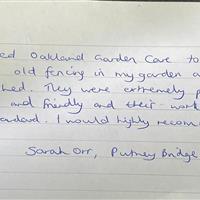 ed Oakland Garden Care to
old fencing in my garden a
hed. They were extremely p
and friendly and their work
andard. I would highly recom
Sarah Orr, Putney Bridge